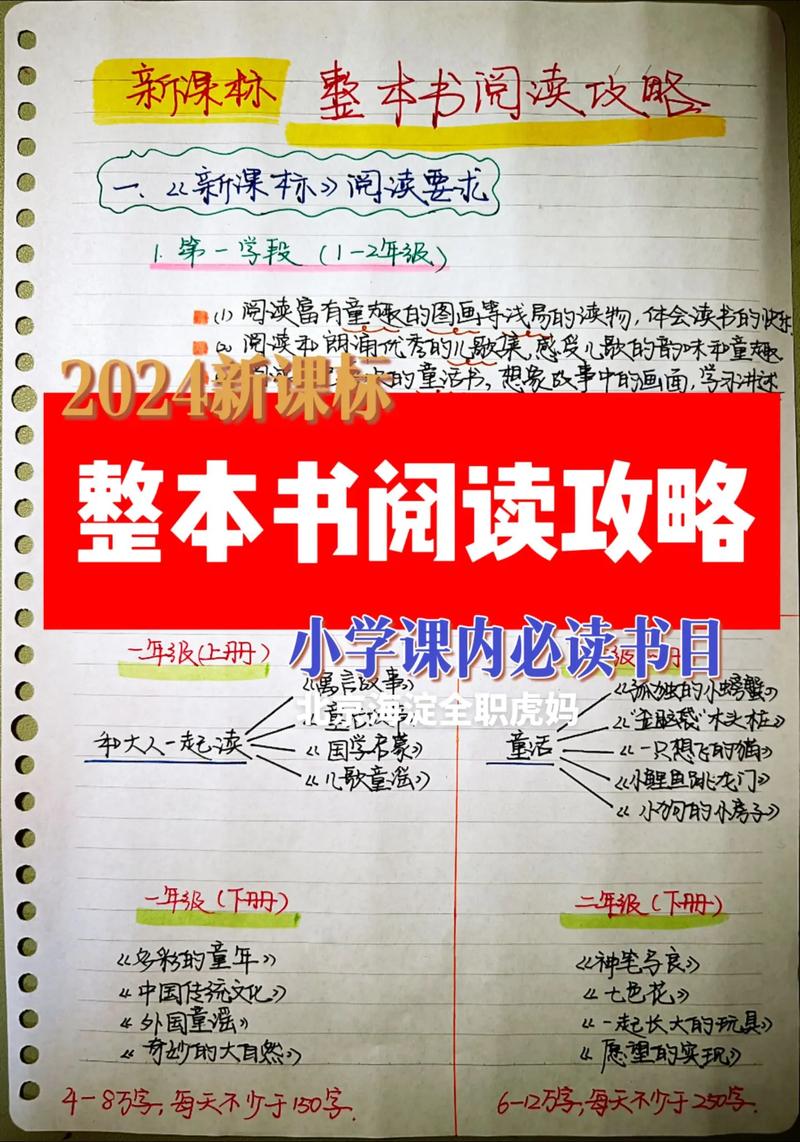 新课标 整本书阅读攻略
一、《新课标》阅读要求
1. 第一学段(1-2年级)
(1) 阅读富有童趣的图画等浅易的读物,体会读书的快乐
(2) 阅读和朗诵优秀的儿歌集,感受儿歌的韵味和童趣
的童话书,想象故事中的画面,学习讲述
2024新课标
整本书阅读攻略
小学课内必读书目
北京海淀全职虎妈
一年级(上册)
和大人一起读
《寓言故事》
《国学启蒙》
《儿歌童谣》
童话
《孤独的小螃蟹》
《“歪脑袋”木头桩》
《一只想飞的猫》
《小鲤鱼跳龙门》
《小狗的小房子》
一年级(下册)
《多彩的童年》
《中国传统文化》
《外国童谣》
《奇妙的大自然》
4-8万字,每天不少于150字.
二年级(下册)
《神笔马良》
《七色花》
《一起长大的玩具》
《愿望的实现》
6-12万字,每天不少于250字.